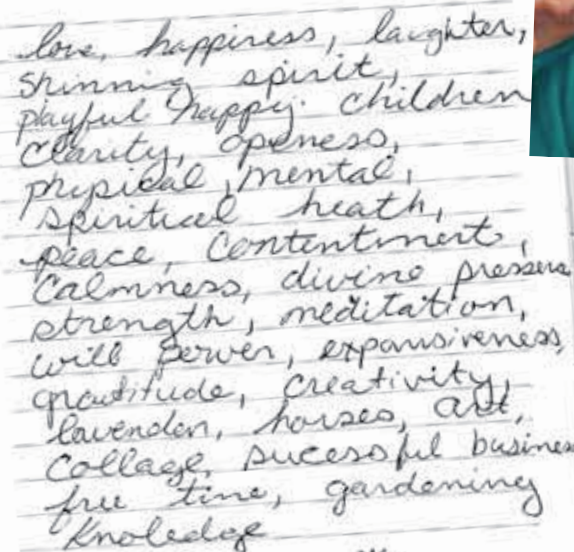 love, happiness, laughter,
shinning spirit,
playful happy. children
clarity, openess,
physical, mental,
spiritual heath,
peace, contentment,
calmness, divine
strength, meditation,
will power, expansiveness,
gratitude, creativity,
lavender, horses, art,
collage, sucessful busines
free time, gardening
knoledge